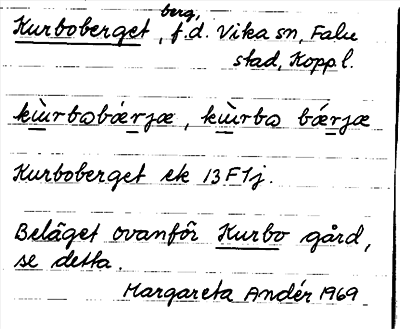 Kurboberget, berg, f.d. Vika sn, Falu
stad, Koppl.
kùrbobǽrjæ, kùrbo bǽrjæ
Kurboberget ek 13F1j.
Beläget ovanför Kurbo gård,
se detta.
Margareta Andér 1969